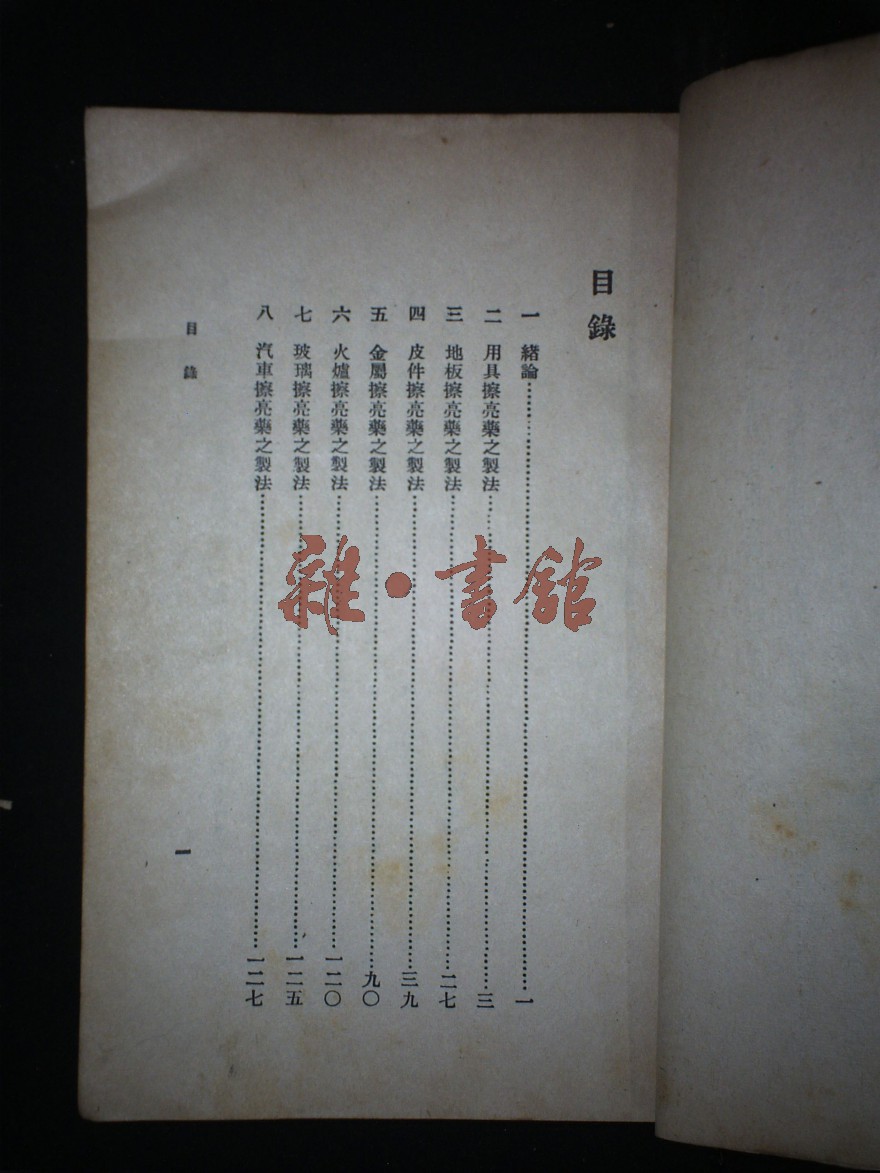 目錄
一 緒論⋯⋯⋯⋯⋯⋯⋯⋯一
二 用具擦亮藥之製法⋯⋯⋯⋯⋯⋯⋯⋯三
三 地板擦亮藥之製法⋯⋯⋯⋯⋯⋯⋯⋯二七
四 皮件擦亮藥之製法⋯⋯⋯⋯⋯⋯⋯⋯三九
五 金屬擦亮藥之製法⋯⋯⋯⋯⋯⋯⋯⋯九〇
六 火爐擦亮藥之製法⋯⋯⋯⋯⋯⋯⋯⋯一二〇
七 玻璃擦亮藥之製法⋯⋯⋯⋯⋯⋯⋯⋯一二五
八 汽車擦亮藥之製法⋯⋯⋯⋯⋯⋯⋯⋯一二七
目錄 一
雜•書館